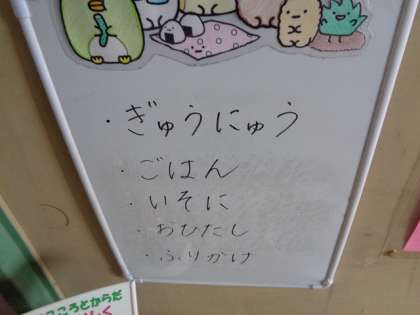 ・ぎゅうにゅう
・ごはん
・いそに
・おひたし
・ふりかけ
こころとからだ